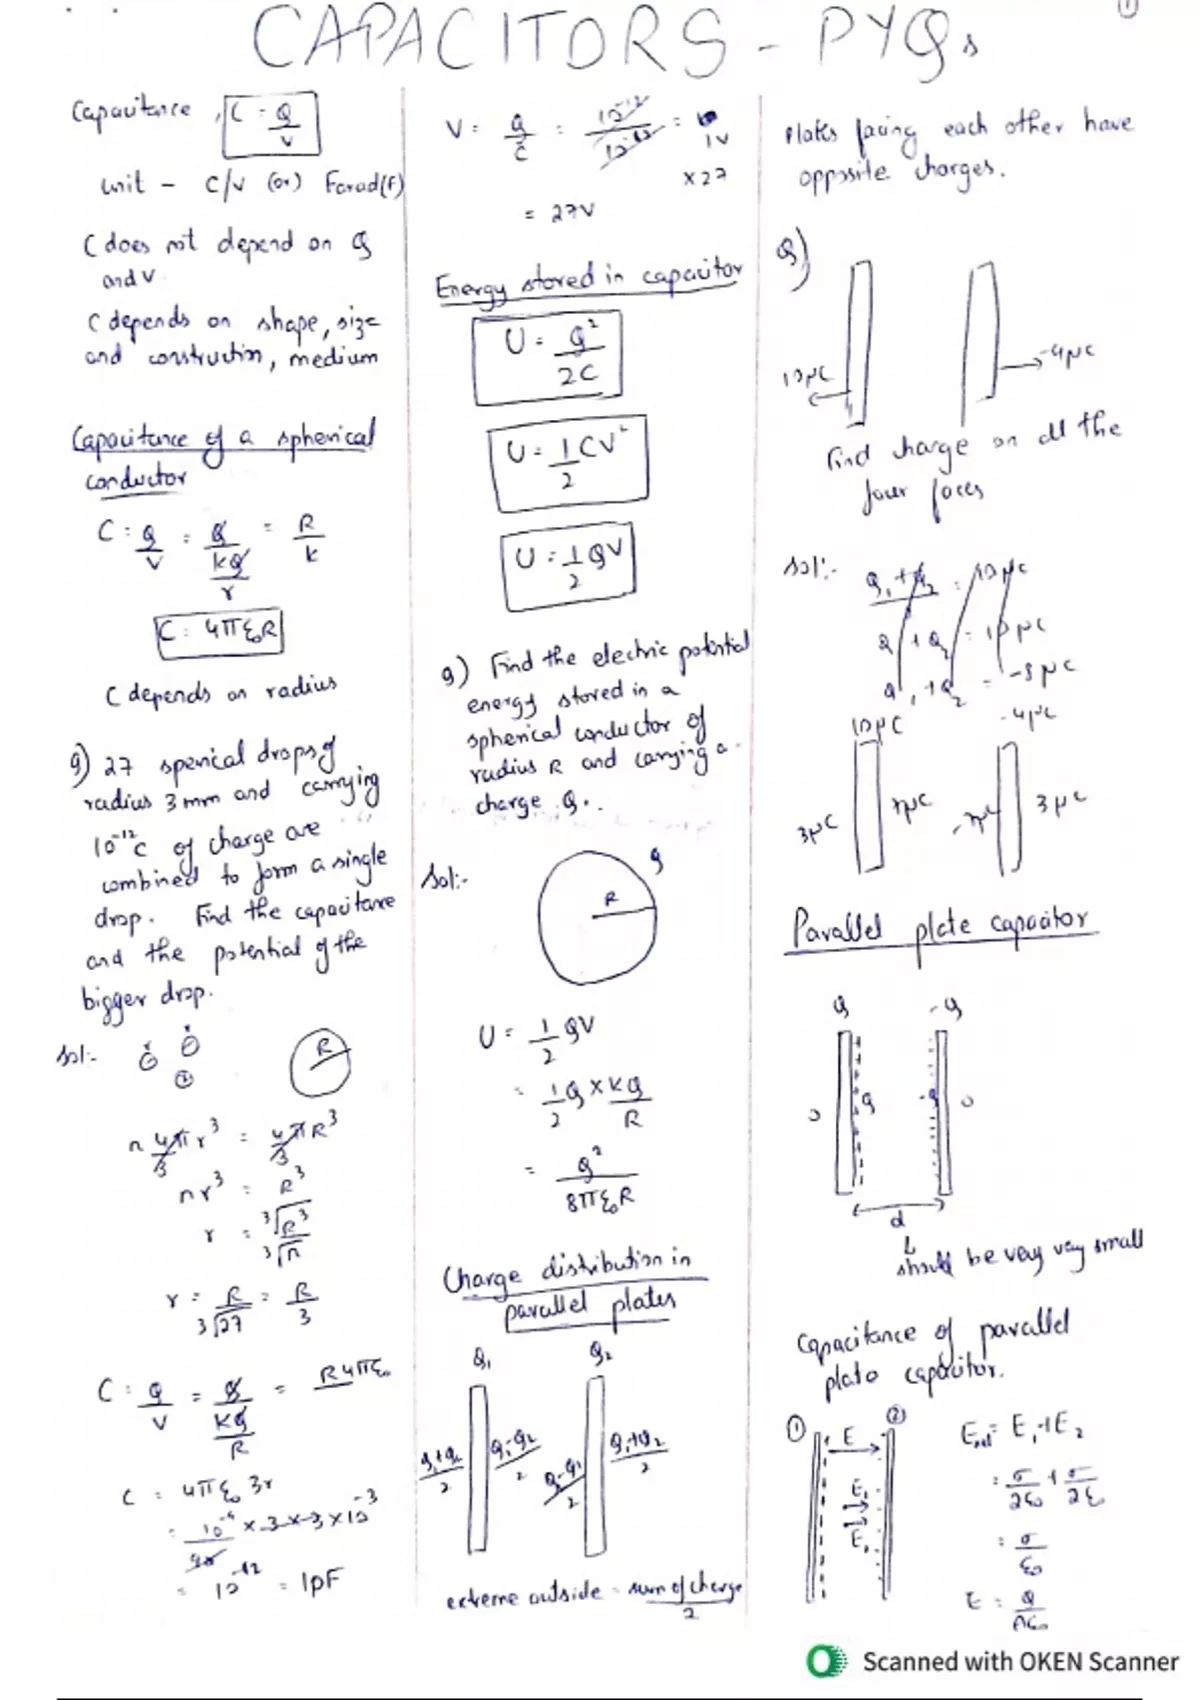 CAPACITORS - PYQs
1
Capacitance, C = Q/V
unit - C/V (or) Farad(F)
C does not depend on Q
and V.
C depends on shape, size
and construction, medium
Capacitance of a spherical
conductor
C = Q/V = Q/(kQ/r) = R/k
C = 4πε₀R
C depends on radius
Q) 27 sperical drops of
radius 3mm and carrying
10⁻¹²C of charge are
combined to form a single
drop. Find the capacitance
and the potential of the
bigger drop.
Sol:-
R
n 4/3 πr³ = 4/3 πR³
nr³ = R³
r = ³√R³/³√n
r = R/³√27 = R/3
C = Q/V = Q/(KQ/R) = R4πε₀
C = 4πε₀ 3r
= 10⁻⁹/90 × 3 × 3 × 10⁻³
= 10⁻¹² = 1pF
V = Q/C = 10⁻¹²/10⁻¹² = 1V
×27
= 27V
Energy stored in capacitor
U = Q²/2C
U = 1/2 CV²
U = 1/2 QV
Q) Find the electric potential
energy stored in a
spherical conductor of
radius R and carrying a
charge Q.
Sol:-
Q
R
U = 1/2 QV
= 1/2 Q × kQ/R
= Q²/8πε₀R
Charge distribution in
parallel plates
Q₁ Q₂
Q₁+Q₂/2 Q₁-Q₂/2 Q₂-Q₁/2 Q₁+Q₂/2
extreme outside = sum of charge/2
Plates facing each other have
opposite charges.
Q)
10μC -4μC
Find charge on all the
four faces
Sol:-
10μC -4μC
3μC 7μC -7μC 3μC
Parallel plate capacitor
Q -Q
0 Q -Q 0
d
should be very very small
Capacitance of parallel
plate capacitor.
① ②
E
E₁
E₂
Enet = E₁+E₂
= σ/2ε₀ + σ/2ε₀
= σ/ε₀
E = Q/Aε₀
Scanned with OKEN Scanner